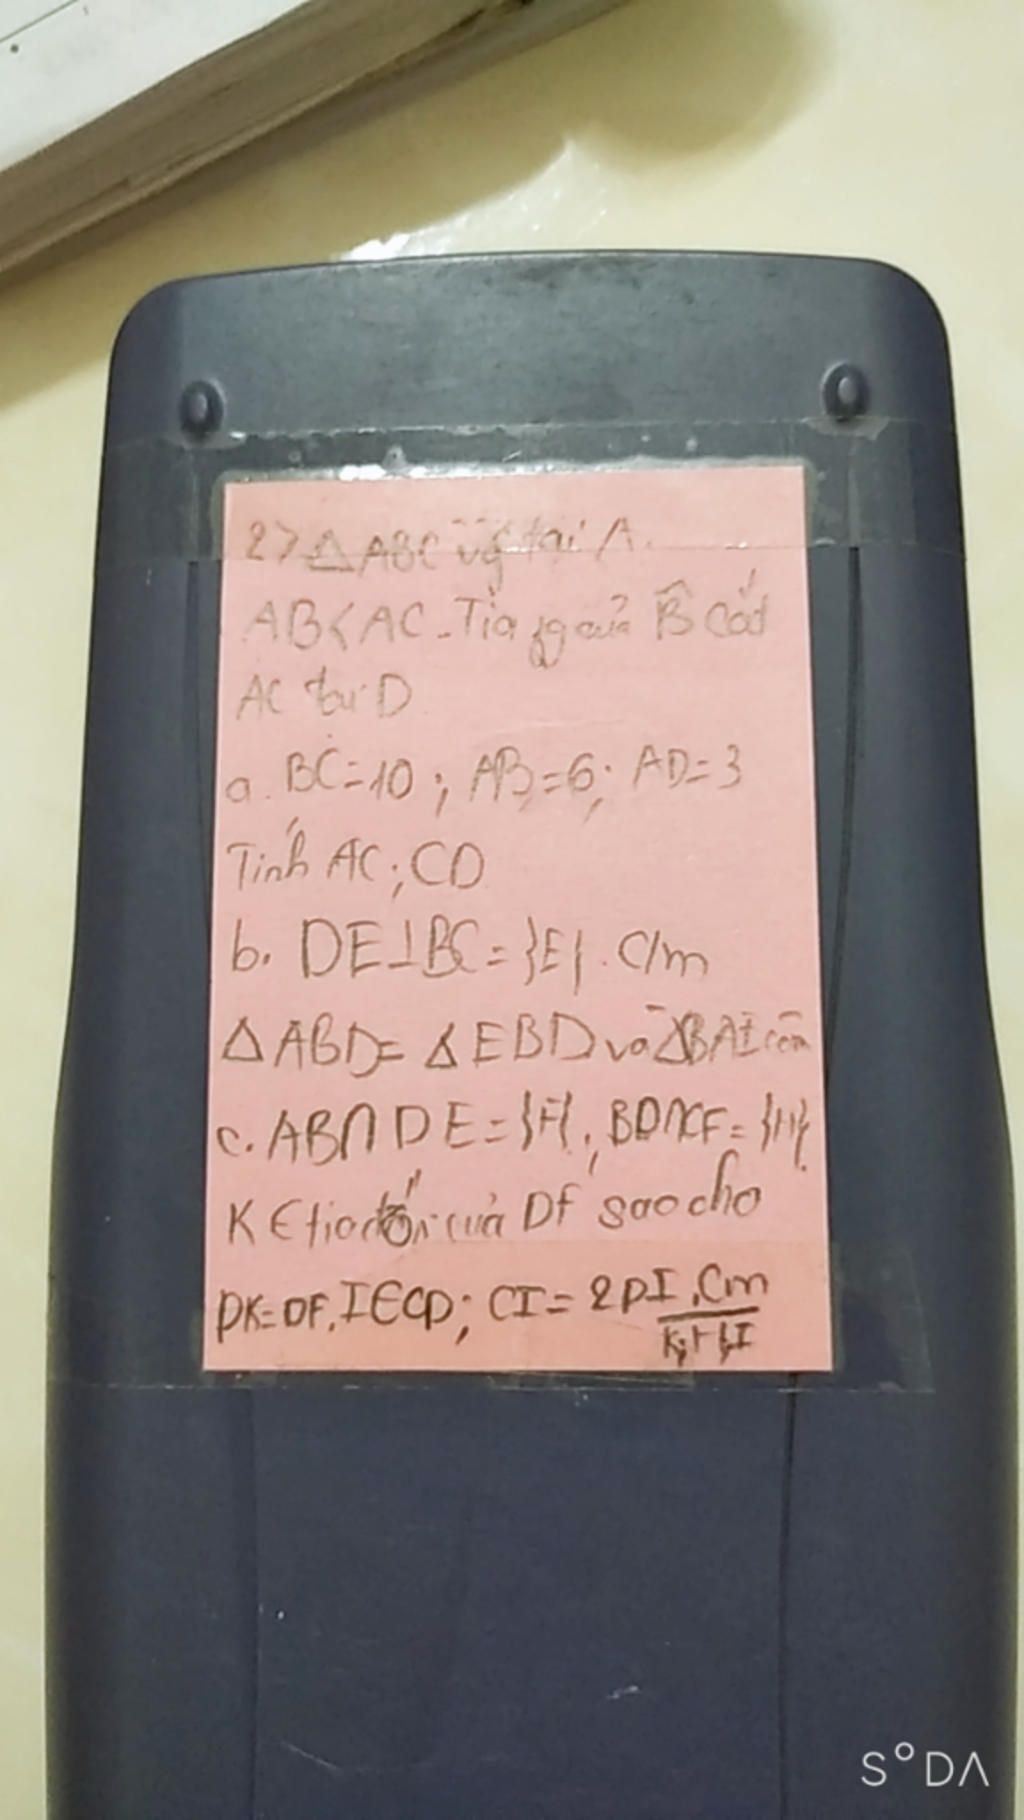 2> △ ABC vg tại A.
AB < AC. Tia fg của B̂ cắt
AC tại D
a. BC = 10 ; AB = 6; AD = 3
Tính AC ; CD
b. DE ⊥ BC = {E}. C/m
△ ABD = △ EBD và △BAE cân
c. AB ∩ DE = {F}, BD ∩ CF = {H}.
K ∈ tia đối của DF sao cho
DK = DF. I ∈ CD; CI = 2DI. Cm
K, H, I
S°DA